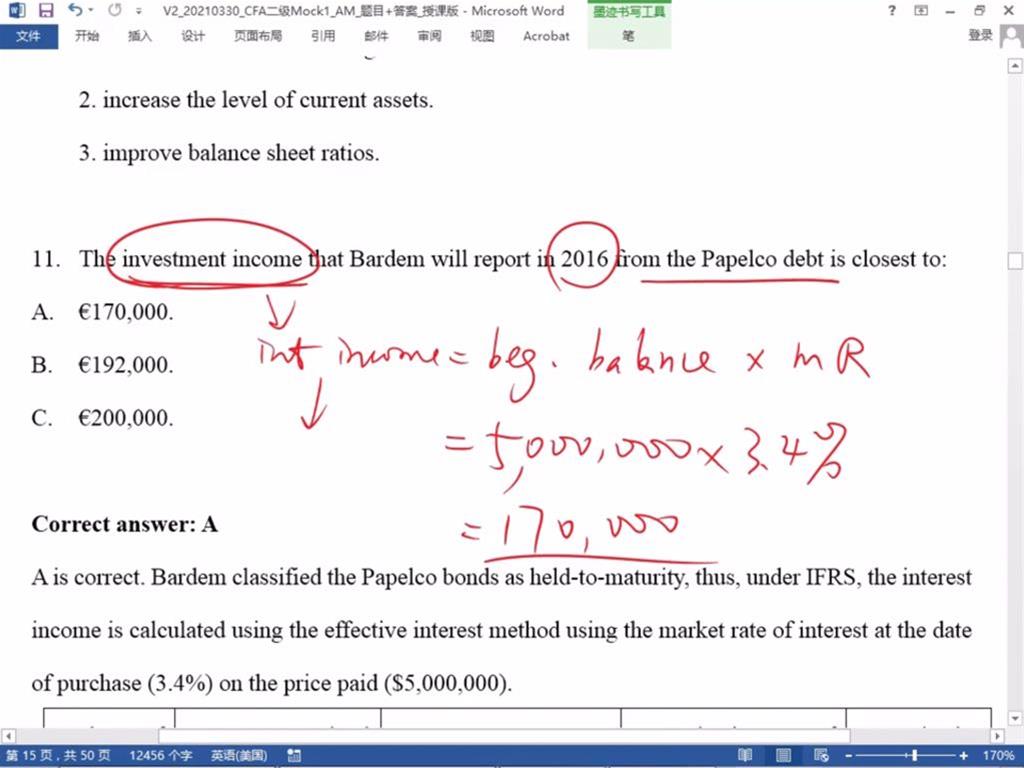 V2_20210330_CFA二级Mock1_AM_题目+答案_授课版 - Microsoft Word
墨迹书写工具
文件 开始 插入 设计 页面布局 引用 邮件 审阅 视图 Acrobat 笔 登录
2. increase the level of current assets.
3. improve balance sheet ratios.
11. The investment income that Bardem will report in 2016 from the Papelco debt is closest to:
A. €170,000.
int income = beg. balance × mR
B. €192,000.
C. €200,000.
= 5,000,000 × 3.4%
= 170,000
Correct answer: A
A is correct. Bardem classified the Papelco bonds as held-to-maturity, thus, under IFRS, the interest
income is calculated using the effective interest method using the market rate of interest at the date
of purchase (3.4%) on the price paid ($5,000,000).
第 15 页，共 50 页 12456 个字 英语(美国) 170%